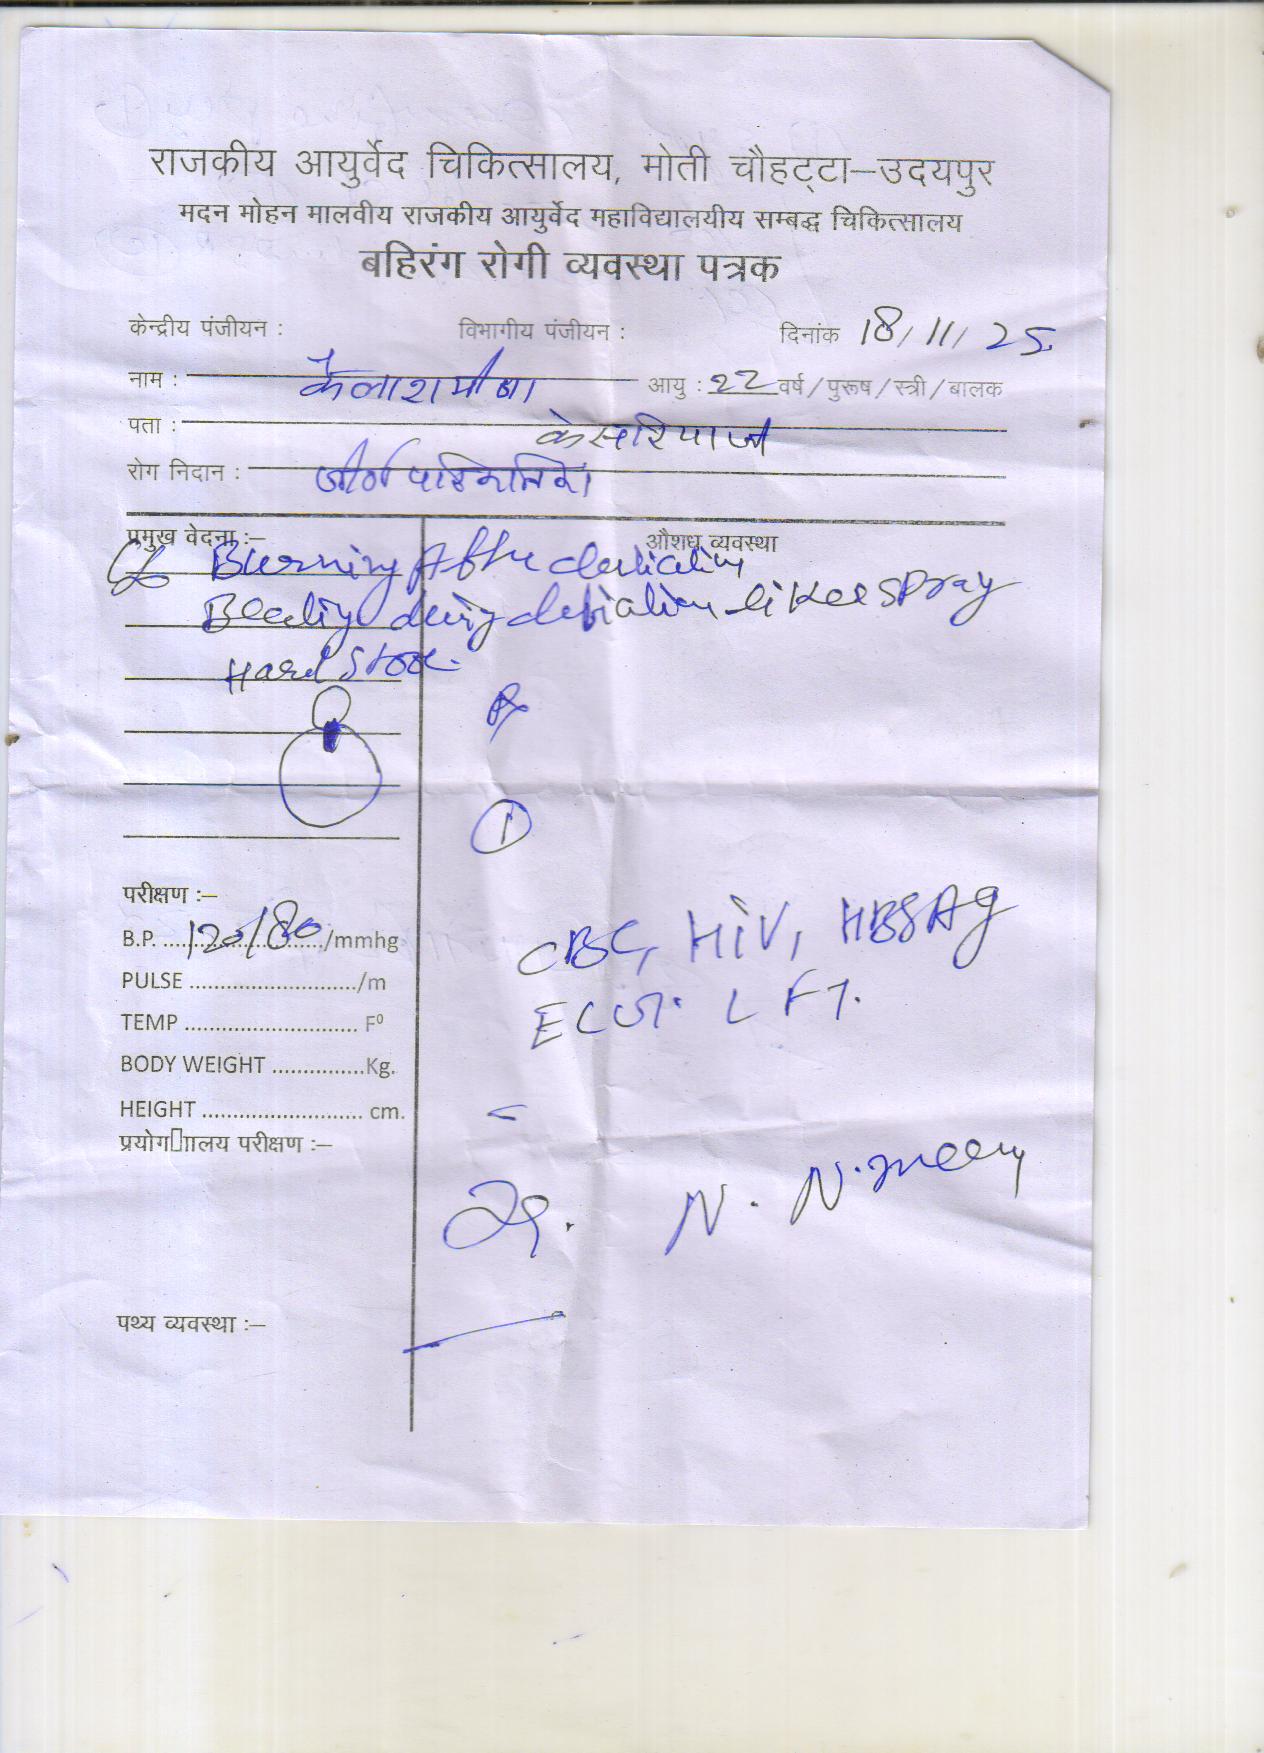 राजकीय आयुर्वेद चिकित्सालय, मोती चौहट्टा–उदयपुर
मदन मोहन मालवीय राजकीय आयुर्वेद महाविद्यालयीय सम्बद्ध चिकित्सालय
बहिरंग रोगी व्यवस्था पत्रक
केन्द्रीय पंजीयन : विभागीय पंजीयन : दिनांक 18/11/25
नाम : कैलाश मीणा आयु : 22 वर्ष/पुरूष/स्त्री/बालक
पता : केसरियाजी
रोग निदान : जीर्ण
प्रमुख वेदना :– औशध व्यवस्था
Burning After
Bleeding spray
Hard Stool.
Rx
1
परीक्षण :–
B.P. ....120/80..../mmhg
CBC, HIV, HBSAg
PULSE ........................../m
ECG. LFT.
TEMP ........................... F⁰
BODY WEIGHT ...............Kg.
HEIGHT ......................... cm.
प्रयोग▯ाालय परीक्षण :–
N.
पथ्य व्यवस्था :–